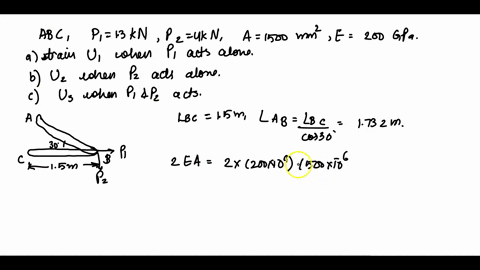 ABC, P₁=13 kN, P₂=4kN, A=1500 mm², E= 200 GPa.
a) strain U₁ when P₁ acts alone.
b) U₂ when P₂ acts alone.
c) U₃ when P₁ & P₂ acts.
LBC = 1.5m, LAB = LBC/cos30 = 1.732 m.
A
30°
C B P₁
1.5m
P₂
2EA = 2 x (200x10⁹) (1500x10⁻⁶